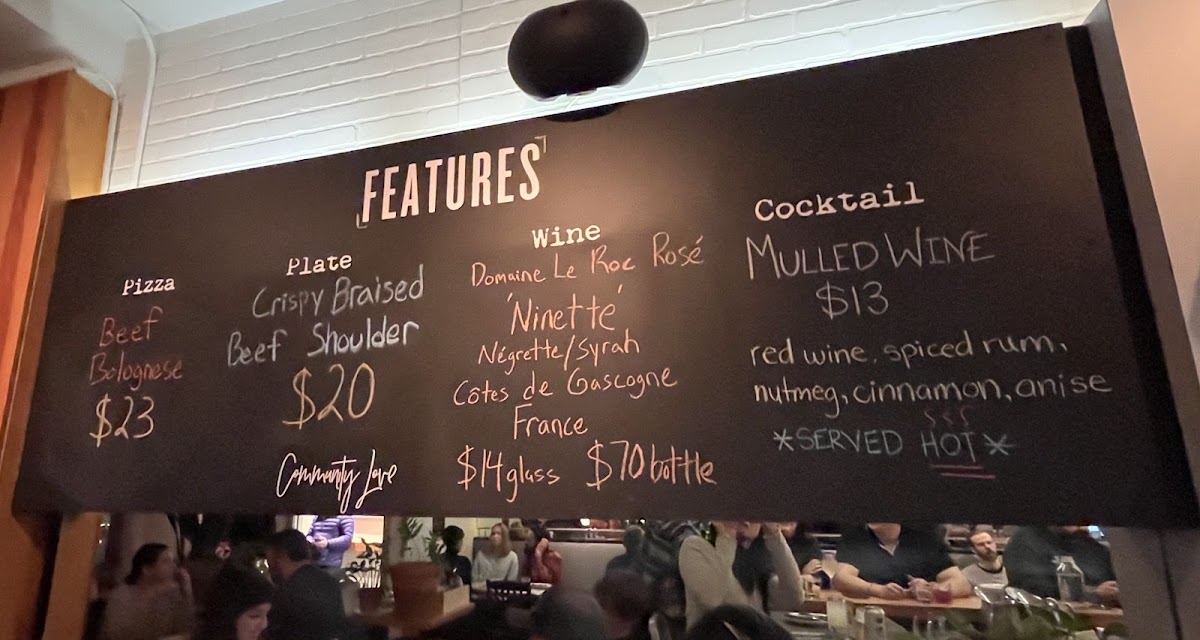 FEATURES
Pizza
Beef
Bolognese
$23
Plate
Crispy Braised
Beef Shoulder
$20
Community Love
Wine
Domaine Le Roc Rosé
'Ninette'
Négrette/Syrah
Côtes de Gascogne
France
$14 glass $70 bottle
Cocktail
MULLED WINE
$13
red wine, spiced rum,
nutmeg, cinnamon, anise
*SERVED HOT*